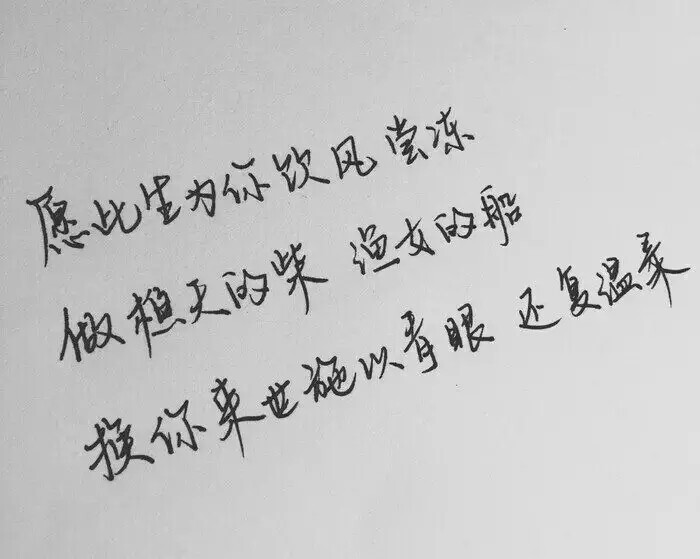 愿此生为你饮风尝冻
做樵夫的柴 渔女的船
换你来世施以青眼 还复温柔